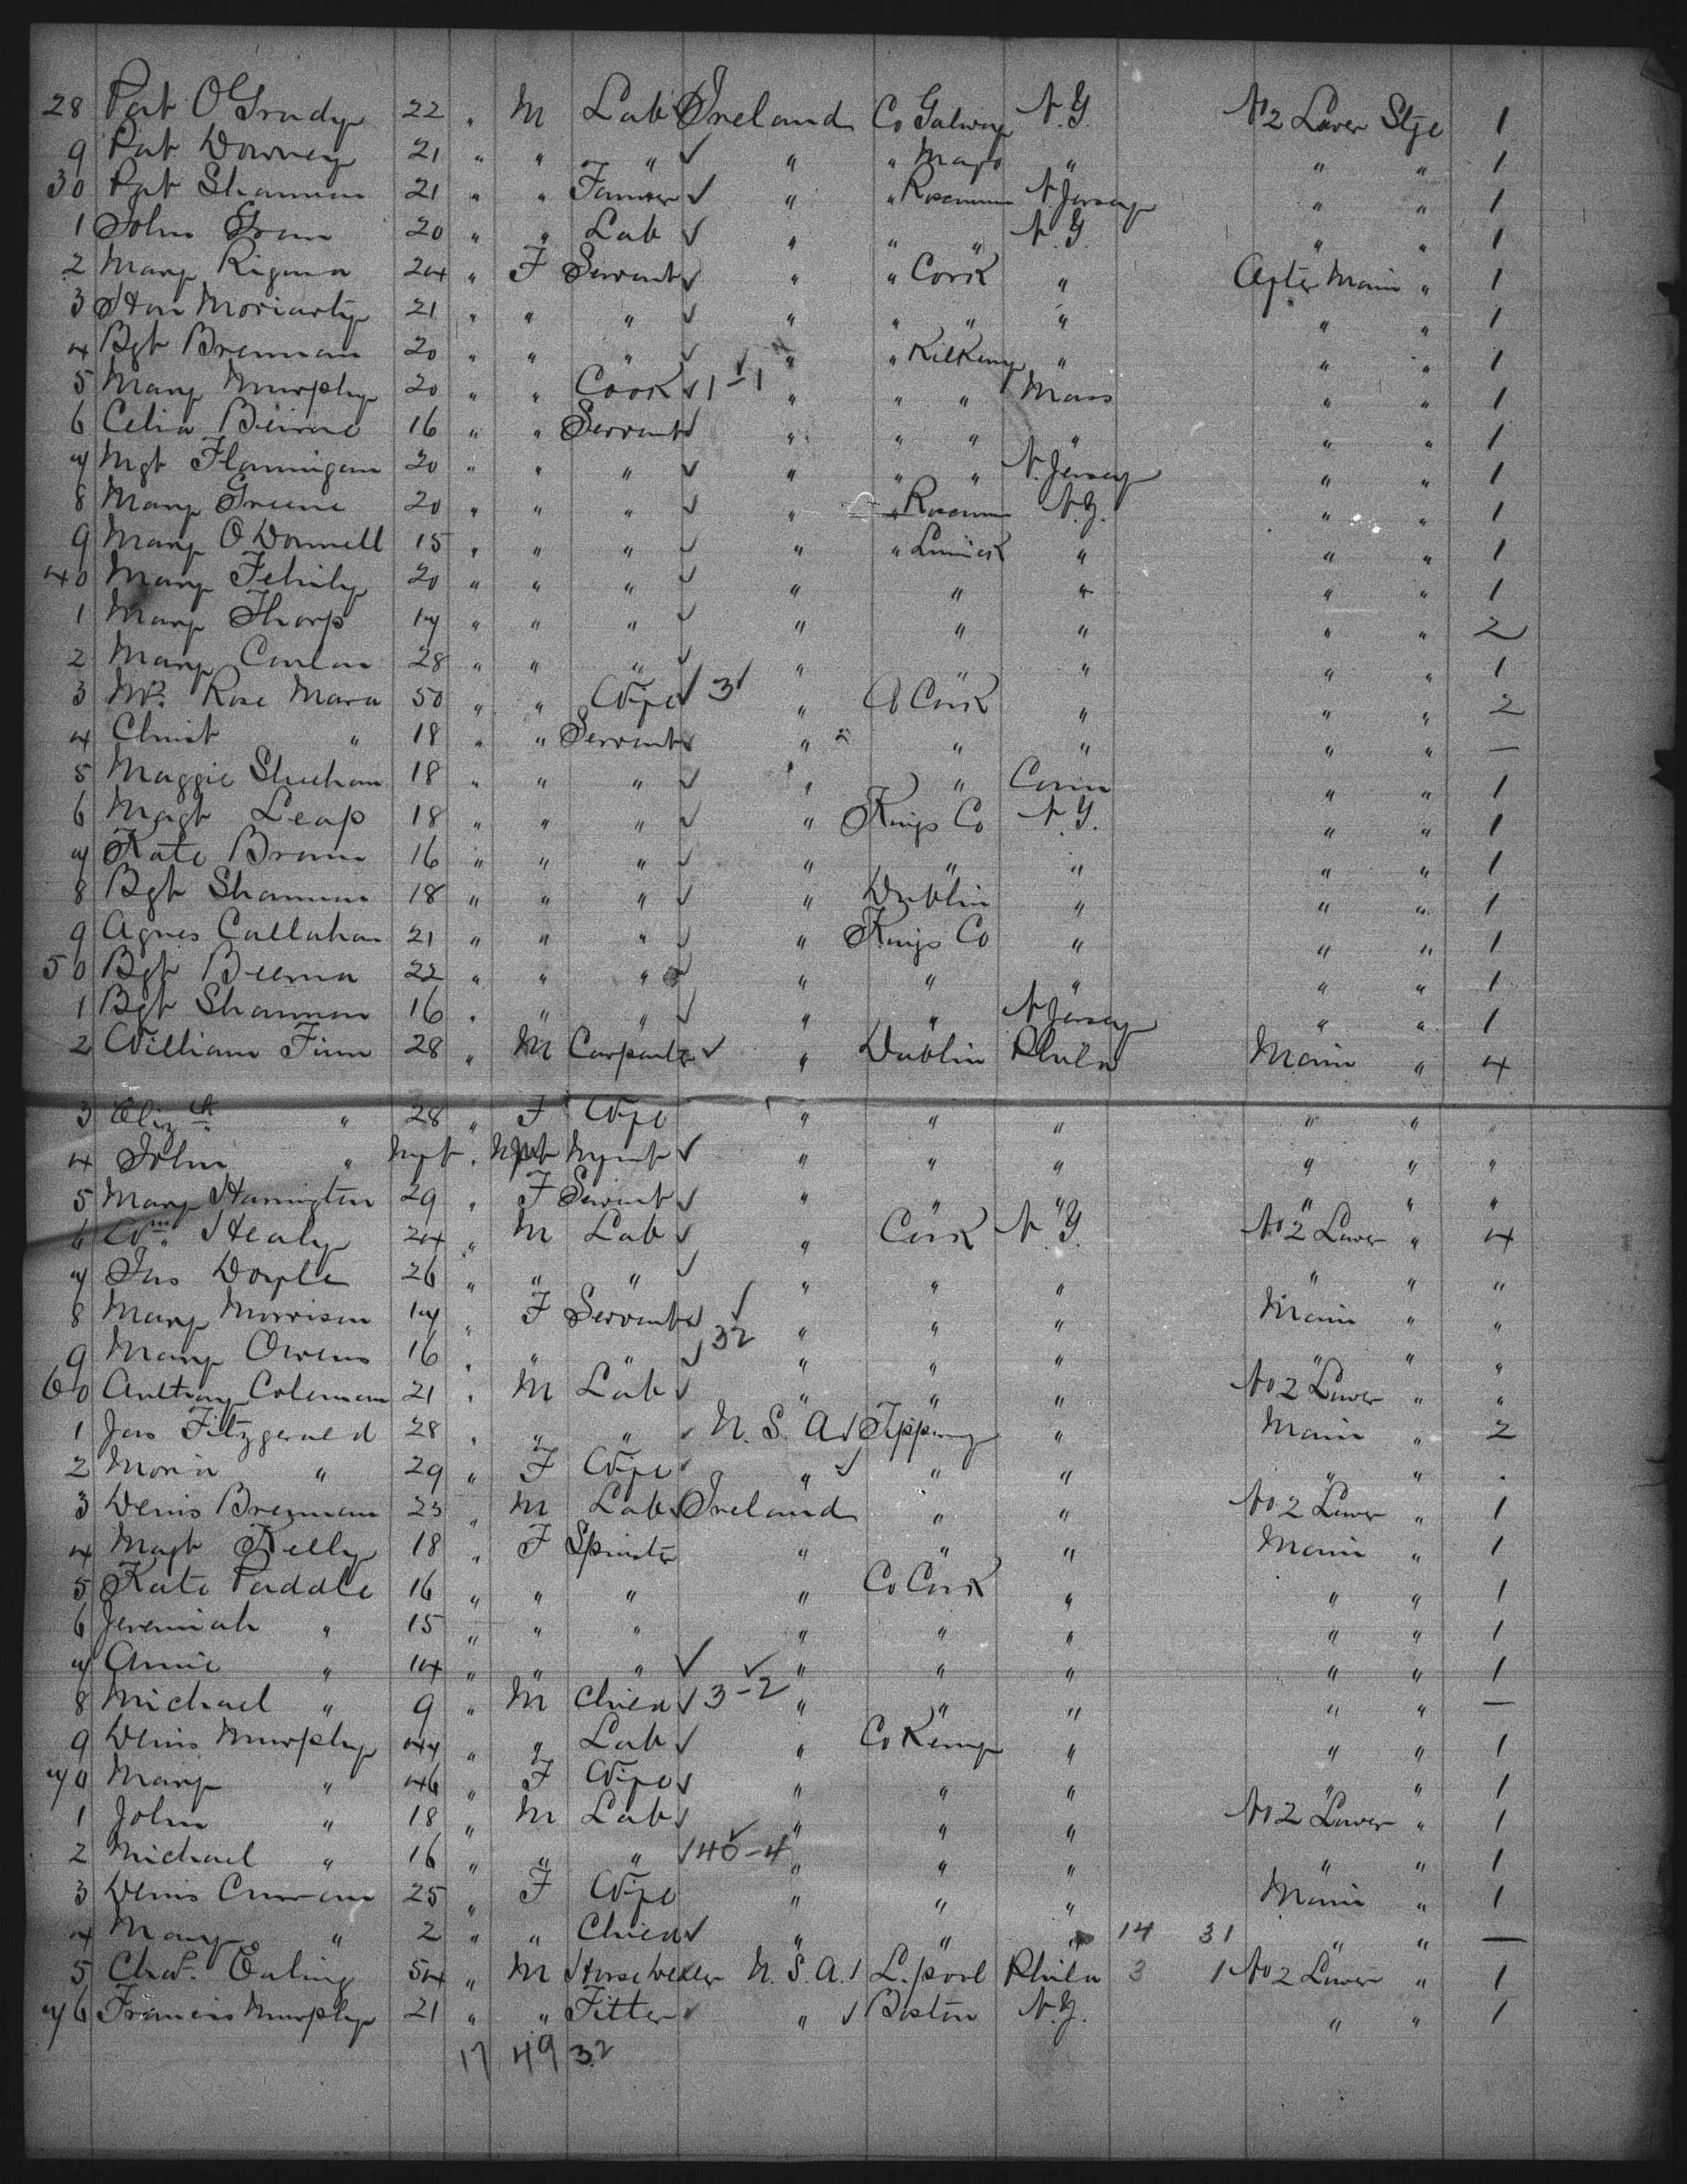 28 Pat O'Grady 22 " M Lab Ireland Co Galway N.Y. No 2 Lower Stge 1
9 Pat Downey 21 " " " ✓ " " Mayo " " " 1
30 Pat Shannon 21 " " Farmer ✓ " " Roscommn N. Jersey " " 1
1 John 20 " " Lab ✓ " " " N.Y. " " 1
2 Mary 24 " F Servant ✓ " " Cork " After Main " 1
3 Hon Moriarty 21 " " " ✓ " " " " " " 1
4 Bgt Brennan 20 " " " ✓ " " Kilkeny " " " 1
5 Mary Murphy 20 " " Cook ✓ 1-1 " " " Mass " " 1
6 Celia Beirne 16 " " Servant ✓ " " " " " " 1
7 Mgt Flannigan 20 " " " ✓ " " " N. Jersey " " 1
8 Mary Greene 20 " " " ✓ " " Roscomm N.Y. " " 1
9 Mary O'Donnell 15 " " " ✓ " " Limick " " " 1
40 Mary Fehily 20 " " " ✓ " " " " " 1
1 Mary Tharp 17 " " " ✓ " " " " " 2
2 Mary Conlon 28 " " " ✓ " " " " " 1
3 Mrs. Rose Mara 50 " " Wife ✓ 3 ✓ " Co Cork " " " 2
4 Christ " 18 " " Servant ✓ " " " " " —
5 Maggie Sheehan 18 " " " ✓ " " Conn " " 1
6 Magt Leap 18 " " " ✓ " Kings Co N.Y. " " 1
7 Kate Brown 16 " " " ✓ " " " " " 1
8 Bgt Shannon 18 " " " ✓ " Dublin " " " 1
9 Agnes Callahan 21 " " " ✓ " Kings Co " " " 1
50 Bgt 22 " " " ✓ " " " " " 1
1 Bgt Shannon 16 " " " ✓ " " N Jersey " " 1
2 William Finn 28 " M Carpenter ✓ " Dublin Phila Main " 4
3 Elizth " 28 " F Wife " " " " " "
4 John " Infnt " Infnt Infnt ✓ " " " " " "
5 Mary Harrington 29 " F Servant ✓ " " " " " "
6 Wm Healy 24 " M Lab ✓ " Cork N.Y. No 2 Lower " 4
7 Jas Doyle 26 " " " ✓ " " " " " "
8 Mary Morrison 17 " F Servant ✓ ✓ " " " Main " "
9 Mary Owens 16 " " " ✓ 32 " " " " " "
60 Anthony Coleman 21 " M Lab ✓ " " " No 2 Lower " "
1 Jas Fitzgerald 28 " " " ✓ U.S.A ✓ Tipprary " Main " 2
2 Maria " 29 " F Wife ✓ " ✓ " " " " "
3 Denis Brennan 23 " M Lab ✓ Ireland " " No 2 Lower " 1
4 Magt Kelly 18 " F Spinster " " " Main " 1
5 Kate 16 " " " " Co Cork " " " 1
6 Jeremiah " 15 " " " " " " " " 1
7 Annie " 14 " " " ✓ ✓ " " " " " 1
8 Michael " 9 " M Child ✓ 3-2 " " " " " —
9 Denis Murphy 47 " " Lab ✓ " Co Kerry " " " 1
70 Mary " 46 " F Wife ✓ " " " " " 1
1 John " 18 " M Lab ✓ " " " No 2 Lower " 1
2 Michael " 16 " " " ✓ 40-4 " " " " " 1
3 Denis Curran 25 " F Wife " " " Main " 1
4 Mary " 2 " " Child ✓ " " " 14 31 " " —
5 Chas. Ealing 54 " M Horse U.S.A. ✓ L.pool Phila 3 1 No 2 Lower " 1
76 Francis Murphy 21 " " Fitter ✓ " ✓ Boston N.Y. " " 1
17 49 32